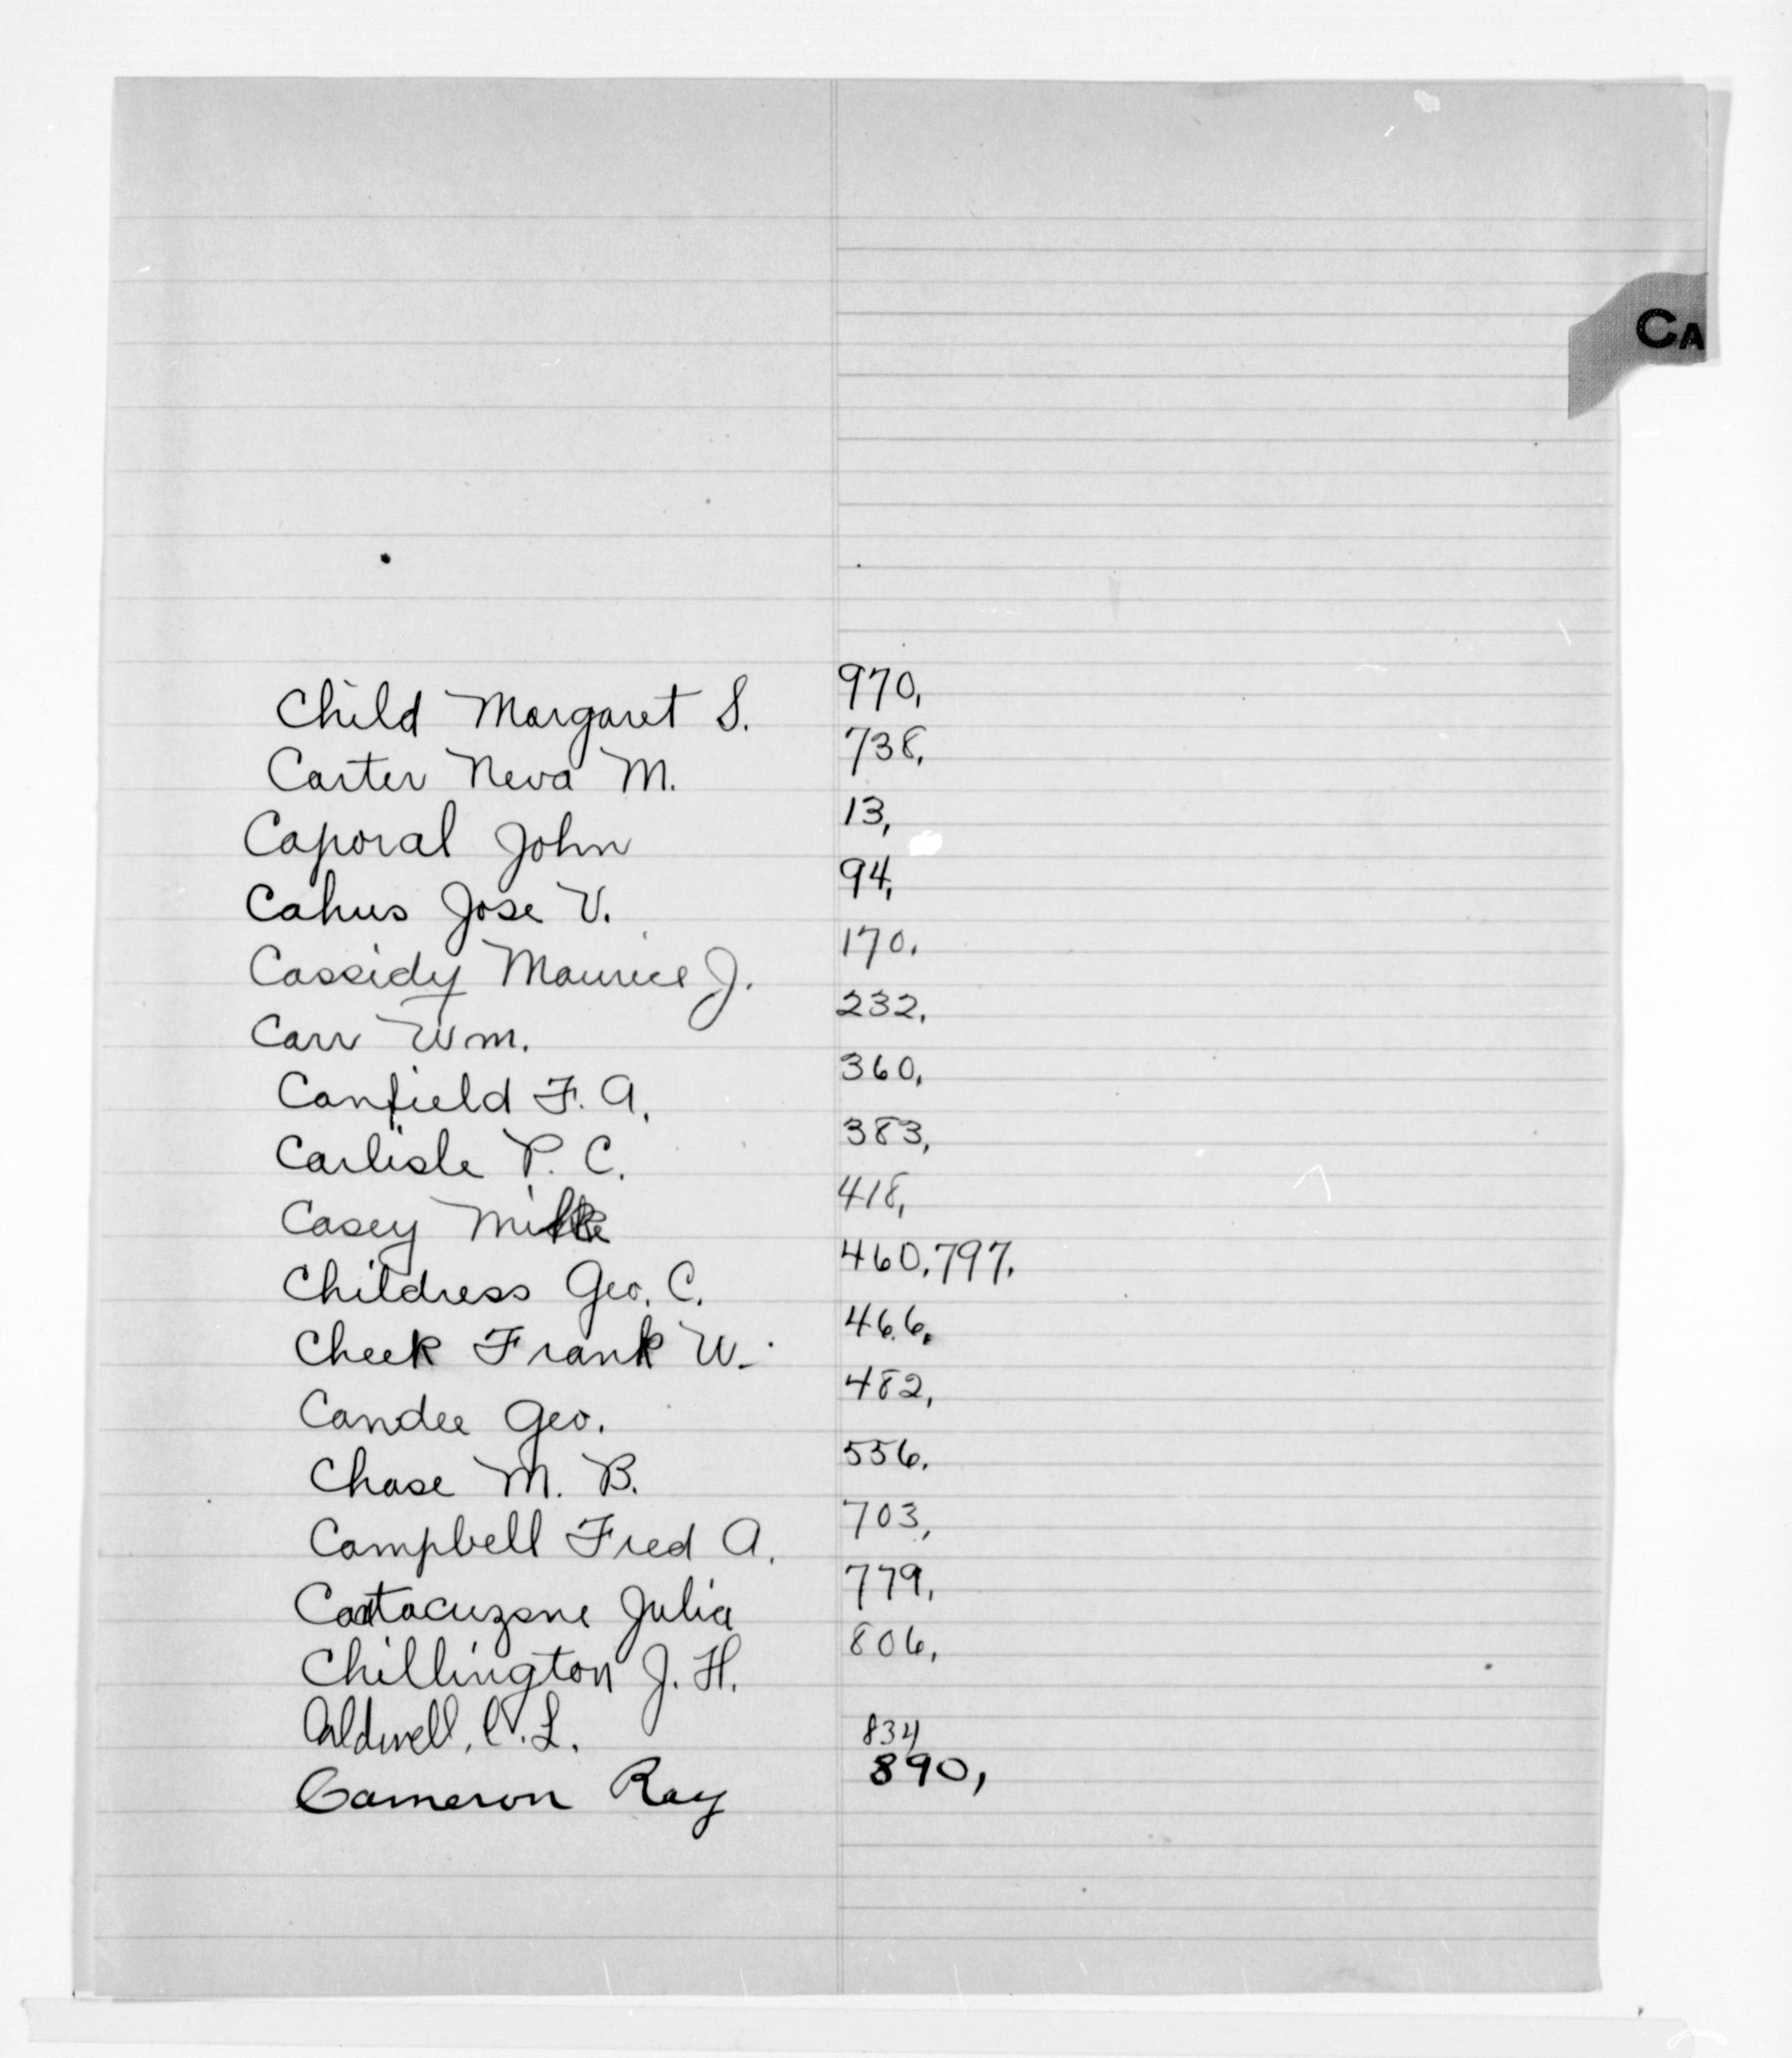 CA
Child Margaret S. 970,
Carter Neva M. 738,
Caporal John 13,
Cahus Jose V. 94,
Cassidy Maurice J. 170.
Carr Wm. 232,
Canfield F. A. 360,
Carlisle P. C. 383,
Casey Mike 418,
Childress Geo. C. 460.797.
Cheek Frank W. 466.
Candee Geo. 482,
Chase M. B. 556.
Campbell Fred A. 703,
Julia 779,
Chillington J. H. 806,
Caldwell, C. L. 834
Cameron Ray 890,